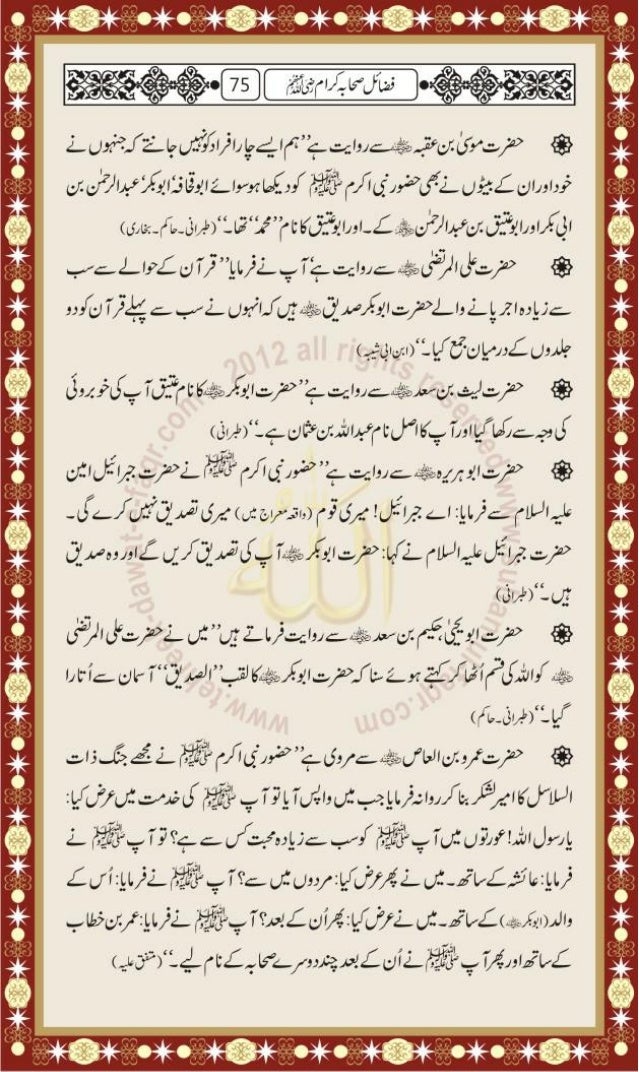 فضائل صحابہ کرام رضی اللہ عنہم
75
حضرت موسیٰ بن عقبہ رضی اللہ عنہ سے روایت ہے ’’ہم ایسے چار افراد کو نہیں جانتے کہ جنہوں نے
خود اور ان کے بیٹوں نے بھی حضور نبی اکرم ﷺ کو دیکھا ہو سوائے ابوقحافہ‘ ابوبکر‘ عبدالرحمٰن بن
ابی بکر اور ابوعتیق بن عبدالرحمٰن رضی اللہ عنہم کے۔ اور ابوعتیق کا نام ’’محمد‘‘ تھا۔‘‘ (طبرانی۔ حاکم۔ بخاری)
حضرت علی المرتضٰی رضی اللہ عنہ سے روایت ہے‘ آپ نے فرمایا ’’قرآن کے حوالے سے سب
سے زیادہ اجر پانے والے حضرت ابوبکر صدیق رضی اللہ عنہ ہیں کہ انہوں نے سب سے پہلے قرآن کو دو
جلدوں کے درمیان جمع کیا۔‘‘ (ابن ابی شیبہ)
حضرت لیث بن سعد رضی اللہ عنہ سے روایت ہے ’’حضرت ابوبکر رضی اللہ عنہ کا نام عتیق آپ کی خوبروئی
کی وجہ سے رکھا گیا اور آپ کا اصل نام عبداللہ بن عثمان ہے۔‘‘ (طبرانی)
حضرت ابوہریرہ رضی اللہ عنہ سے روایت ہے ’’حضور نبی اکرم ﷺ نے حضرت جبرائیل امین
علیہ السلام سے فرمایا: اے جبرائیل! میری قوم (واقعہ معراج میں) میری تصدیق نہیں کرے گی۔
حضرت جبرائیل علیہ السلام نے کہا: حضرت ابوبکر رضی اللہ عنہ آپ کی تصدیق کریں گے اور وہ صدیق
ہیں۔‘‘ (طبرانی)
حضرت ابویحییٰ، حکیم بن سعد رضی اللہ عنہ سے روایت فرماتے ہیں ’’میں نے حضرت علی المرتضٰی
رضی اللہ عنہ کو اللہ کی قسم اُٹھا کر کہتے ہوئے سنا کہ حضرت ابوبکر رضی اللہ عنہ کا لقب ’’الصدیق‘‘ آسمان سے اُتارا
گیا۔‘‘ (طبرانی۔ حاکم)
حضرت عمرو بن العاص رضی اللہ عنہ سے مروی ہے ’’حضور نبی اکرم ﷺ نے مجھے جنگ ذات
السلاسل کا امیر لشکر بنا کر روانہ فرمایا جب میں واپس آیا تو آپ ﷺ کی خدمت میں عرض کیا:
یارسول اللہ! عورتوں میں آپ ﷺ کو سب سے زیادہ محبت کس سے ہے؟ تو آپ ﷺ نے
فرمایا: عائشہ کے ساتھ۔ میں نے پھر عرض کیا: مردوں میں سے؟ آپ ﷺ نے فرمایا: اُس کے
والد (ابوبکر رضی اللہ عنہ) کے ساتھ۔ میں نے عرض کیا: پھر اُن کے بعد؟ آپ ﷺ نے فرمایا: عمر بن خطاب
کے ساتھ اور پھر آپ ﷺ نے اُن کے بعد چند دوسرے صحابہ کے نام لیے۔‘‘ (متفق علیہ)
اللہ
2012 all rights reserved